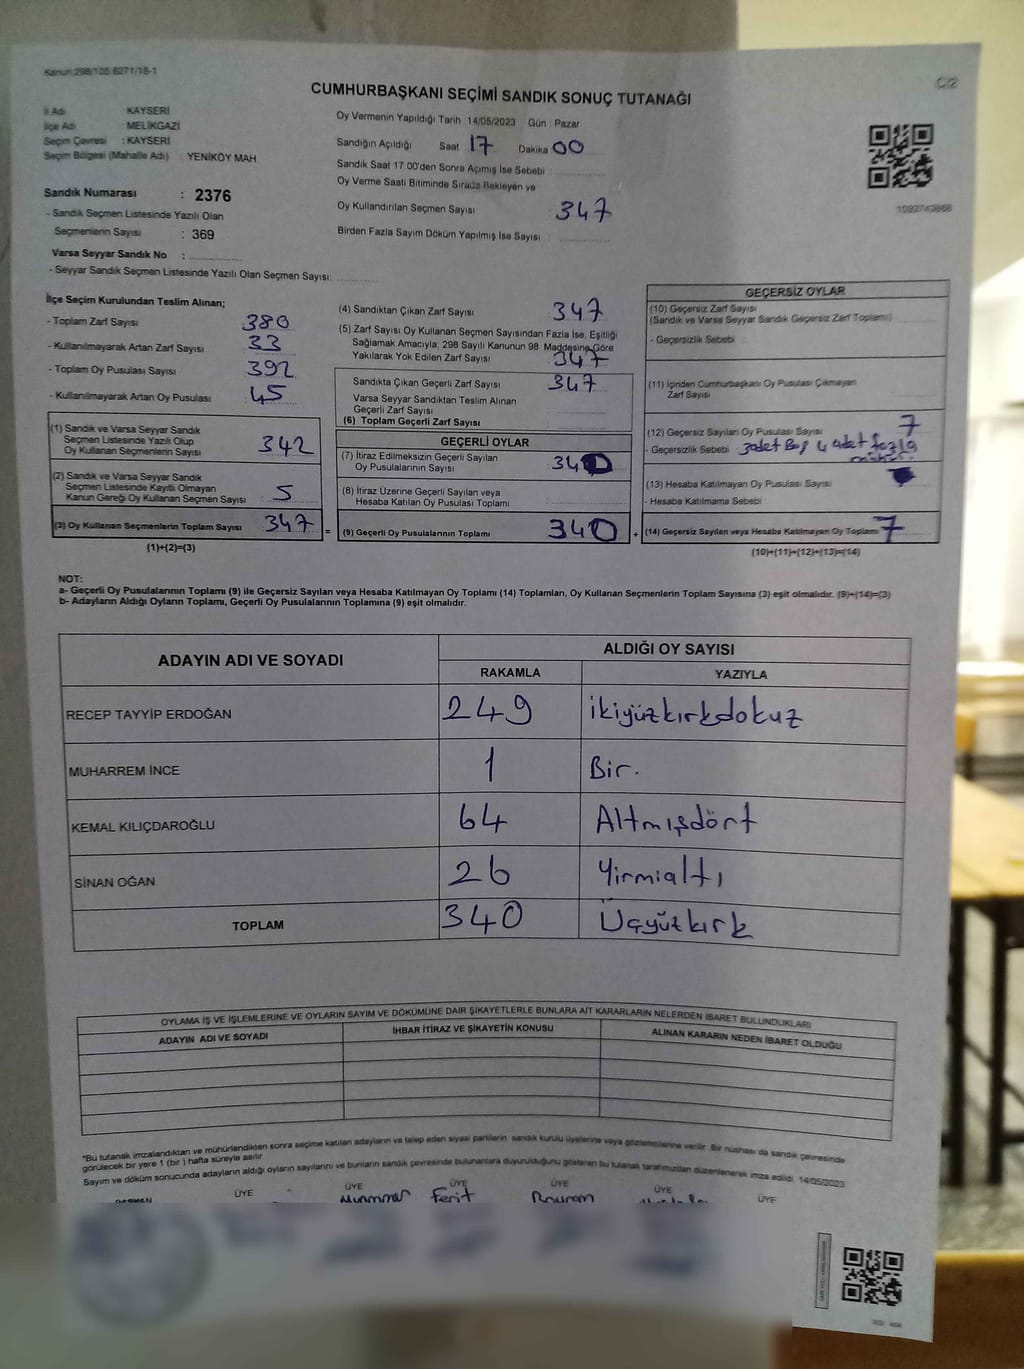 Kanun:298/105 6271/18-1
C/2
CUMHURBAŞKANI SEÇİMİ SANDIK SONUÇ TUTANAĞI
İl Adı KAYSERİ
İlçe Adı : MELİKGAZİ
Seçim Çevresi : KAYSERİ
Seçim Bölgesi (Mahalle Adı) : YENİKÖY MAH
Sandık Numarası : 2376
- Sandık Seçmen Listesinde Yazılı Olan
Seçmenlerin Sayısı : 369
Varsa Seyyar Sandık No :
- Seyyar Sandık Seçmen Listesinde Yazılı Olan Seçmen Sayısı:
Oy Vermenin Yapıldığı Tarih 14/05/2023 Gün : Pazar
Sandığın Açıldığı Saat 17 Dakika 00
Sandık Saat 17:00'den Sonra Açmış İse Sebebi :
Oy Verme Saati Bitiminde Sırada Bekleyen ve
Oy Kullandırılan Seçmen Sayısı 347
Birden Fazla Sayım Döküm Yapılmış İse Sayısı :
1093743868
İlçe Seçim Kurulundan Teslim Alınan;
- Toplam Zarf Sayısı 380
- Kullanılmayarak Artan Zarf Sayısı 33
- Toplam Oy Pusulası Sayısı 392
- Kullanılmayarak Artan Oy Pusulası 45
(1) Sandık ve Varsa Seyyar Sandık
Seçmen Listesinde Yazılı Olup
Oy Kullanan Seçmenlerin Sayısı : 342
(2) Sandık ve Varsa Seyyar Sandık
Seçmen Listesinde Kayıtlı Olmayan
Kanun Gereği Oy Kullanan Seçmen Sayısı : 5
(3) Oy Kullanan Seçmenlerin Toplam Sayısı : 347 =
(1)+(2)=(3)
(4) Sandıktan Çıkan Zarf Sayısı 347
(5) Zarf Sayısı Oy Kullanan Seçmen Sayısından Fazla İse, Eşitliği
Sağlamak Amacıyla, 298 Sayılı Kanunun 98. Maddesine Göre
Yakılarak Yok Edilen Zarf Sayısı 347
Sandıkta Çıkan Geçerli Zarf Sayısı 347
Varsa Seyyar Sandıktan Teslim Alınan
Geçerli Zarf Sayısı
(6) Toplam Geçerli Zarf Sayısı
GEÇERLİ OYLAR
(7) İtiraz Edilmeksizin Geçerli Sayılan
Oy Pusulalarının Sayısı : 340
(8) İtiraz Üzerine Geçerli Sayılan veya
Hesaba Katılan Oy Pusulası Toplamı :
(9) Geçerli Oy Pusulalarının Toplamı : 340 +
GEÇERSİZ OYLAR
(10) Geçersiz Zarf Sayısı
(Sandık ve Varsa Seyyar Sandık Geçersiz Zarf Toplamı)
- Geçersizlik Sebebi :
(11) İçinden Cumhurbaşkanı Oy Pusulası Çıkmayan
Zarf Sayısı
(12) Geçersiz Sayılan Oy Pusulası Sayısı 7
- Geçersizlik Sebebi 3adet Boş 4 adet fazla
(13) Hesaba Katılmayan Oy Pusulası Sayısı
- Hesaba Katılmama Sebebi
(14) Geçersiz Sayılan veya Hesaba Katılmayan Oy Toplamı 7
(10)+(11)+(12)+(13)=(14)
NOT:
a- Geçerli Oy Pusulalarının Toplamı (9) ile Geçersiz Sayılan veya Hesaba Katılmayan Oy Toplamı (14) Toplamları, Oy Kullanan Seçmenlerin Toplam Sayısına (3) eşit olmalıdır. (9)+(14)=(3)
b- Adayların Aldığı Oyların Toplamı, Geçerli Oy Pusulalarının Toplamına (9) eşit olmalıdır.
ADAYIN ADI VE SOYADI ALDIĞI OY SAYISI
RAKAMLA YAZIYLA
RECEP TAYYİP ERDOĞAN 249 ikiyüzkırkdokuz
MUHARREM İNCE 1 Bir.
KEMAL KILIÇDAROĞLU 64 Altmışdört
SİNAN OĞAN 26 Yirmialtı
TOPLAM 340 Üçyüzkırk
OYLAMA İŞ VE İŞLEMLERİNE VE OYLARIN SAYIM VE DÖKÜMÜNE DAİR ŞİKAYETLERLE BUNLARA AİT KARARLARIN NELERDEN İBARET BULUNDUKLARI
ADAYIN ADI VE SOYADI İHBAR İTİRAZ VE ŞİKAYETİN KONUSU ALINAN KARARIN NEDEN İBARET OLDUĞU
*Bu tutanak imzalandıktan ve mühürlendikten sonra seçime katılan adayların ve talep eden siyasi partilerin sandık kurulu üyelerine veya gözlemcilerine verilir. Bir nüshası da sandık çevresinde
görülecek bir yere 1 (bir) hafta süreyle asılır.
Sayım ve döküm sonucunda adayların aldığı oyların sayılarını ve bunların sandık çevresinde bulunanlara duyurulduğunu gösteren bu tutanak tarafımızdan düzenlenerek imza edildi. 14/05/2023
ÜYE ÜYE ÜYE ÜYE ÜYE ÜYE
Muammer Ferit